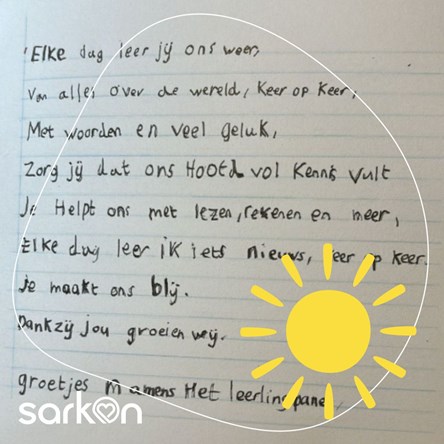 Elke dag leer jij ons weer,
Van alles over de wereld, keer op keer,
Met woorden en veel geluk,
Zorg jij dat ons Hoofd vol kennis vult
Je Helpt ons met lezen, rekenen en meer,
Elke dag leer ik iets nieuws, keer op keer.
Je maakt ons blij.
Dankzij jou groeien wij.
groetjes namens Het leerlingpanel
sarkon